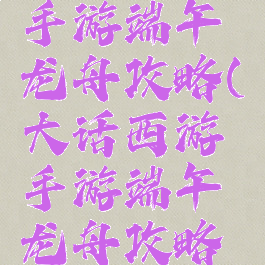 手游端午
龙舟攻略(
大话西游
手游端午
龙舟攻略